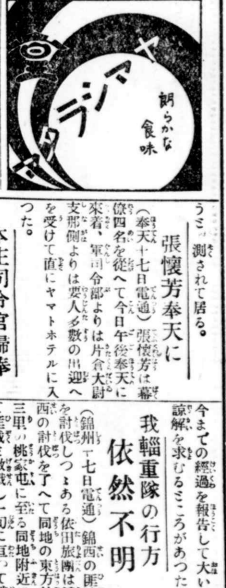 朗らかな
食味
測されて居る。
張懷芳奉天に
(奉天十七日電通)張懷芳は幕
僚四名を從へて今日午後奉天に
來着、軍司令部よりは片倉大尉
支那側よりは要人多數の出迎へ
を受けて直にヤマトホテルに入
つた。
本庄司令官歸奉
今までの經過を報告して大い
諒解を求むるところがあつた
我輜重隊の行方
依然不明
(錦州十七日電通)錦西の匪
を討伐しつゝある依田旅團は
西の討伐を了へて同地の東方
三里の桃家屯に至る同地附近